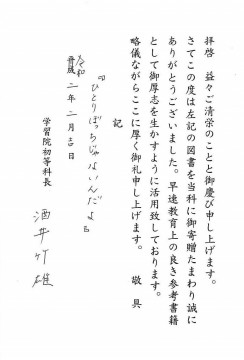 拝啓　益々ご清栄のことと御慶び申し上げます。
さてこの度は左記の図書を当科に御寄贈たまわり誠に
ありがとうございました。早速教育上の良き参考書籍
として御厚志を生かすように活用致しております。
略儀ながらここに厚く御礼申し上げます。
敬具
記
『ひとりぼっちじゃないんだよ』
令和
平成 二年二月吉日
学習院初等科長
酒井竹雄